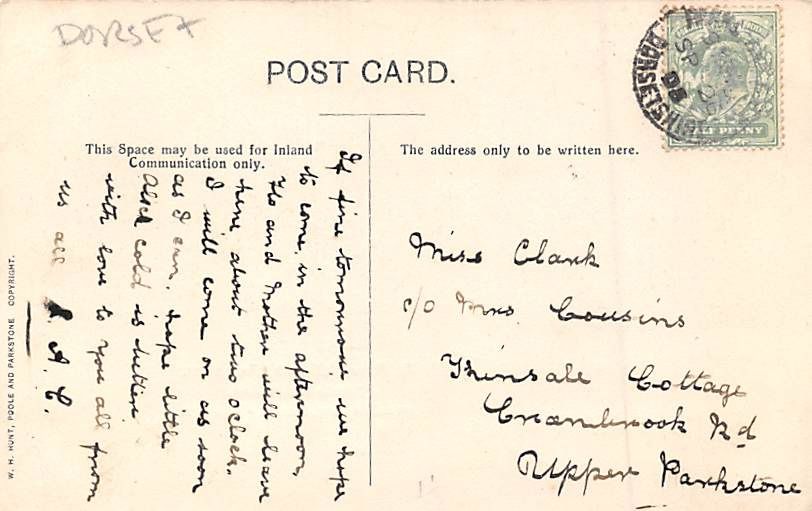 DORSET
POST CARD.
This Space may be used for Inland
Communication only.
The address only to be written here.
HALF PENNY
DORSET
SP
08
If fine tomorrow we hope
to come, in the afternoon,
Flo and Mother will leave
here about two oclock.
I will come on as soon
as I can. hope little
cold is better
with love to you all from
us all
A. C.
Miss Clark
c/o Mrs Cousins
Cottage
Cranbrook Rd
Upper Parkstone
W. H. HUNT, POOLE AND PARKSTONE COPYRIGHT.